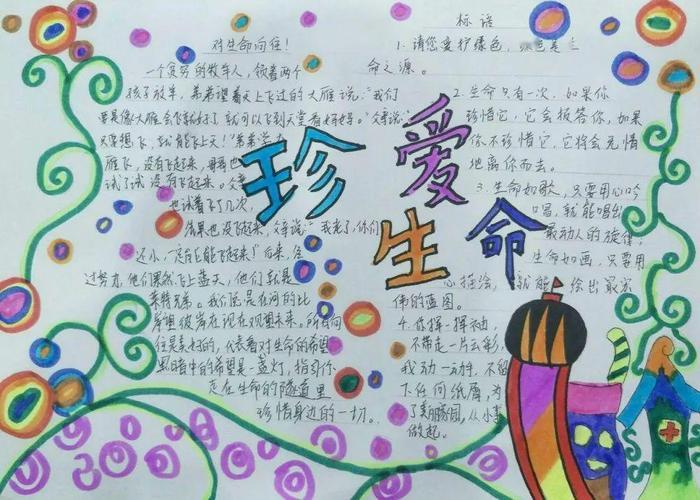 对生命向往!
一个贫穷的牧羊人,领着两个
孩子放羊,弟弟望着天上飞过的大雁说:“我们
要是像大雁会飞就好了就可以飞到天堂看妈妈。”父亲说:“
只要想飞,就能飞上天!”弟弟学大
雁飞,没有飞起来,哥哥也
试了试没有飞起来。父亲
也试着飞了几次,
结果也没飞起来,父亲说:“我老了,你们
还小,一定能飞起来!”后来,经
过努力,他们果然飞上蓝天,他们就是
莱特兄弟。我们总是在河的此
岸望彼岸在现在观望未来。所向
往是美好的,代表着对生命的希望
黑暗中的希望是一盏灯,指引你
走在生命的隧道里
珍惜身边的一切。
珍爱
生命
标语
1.请您爱护绿色,绿色是生
命之源。
2.生命只有一次,如果你
珍惜它,它会报答你,如果
你不珍惜它,它将会无情
地离你而去。
3.生命如歌,只要用心吟
唱,就能唱出
最动人的旋律,
生命如画,只要用
心描绘,就能绘出最宏
伟的蓝图。
4.你挥一挥袖,
不带走一片云彩,
我动一动手,不留
下任何纸屑,为
了美丽校园,从小事
做起。